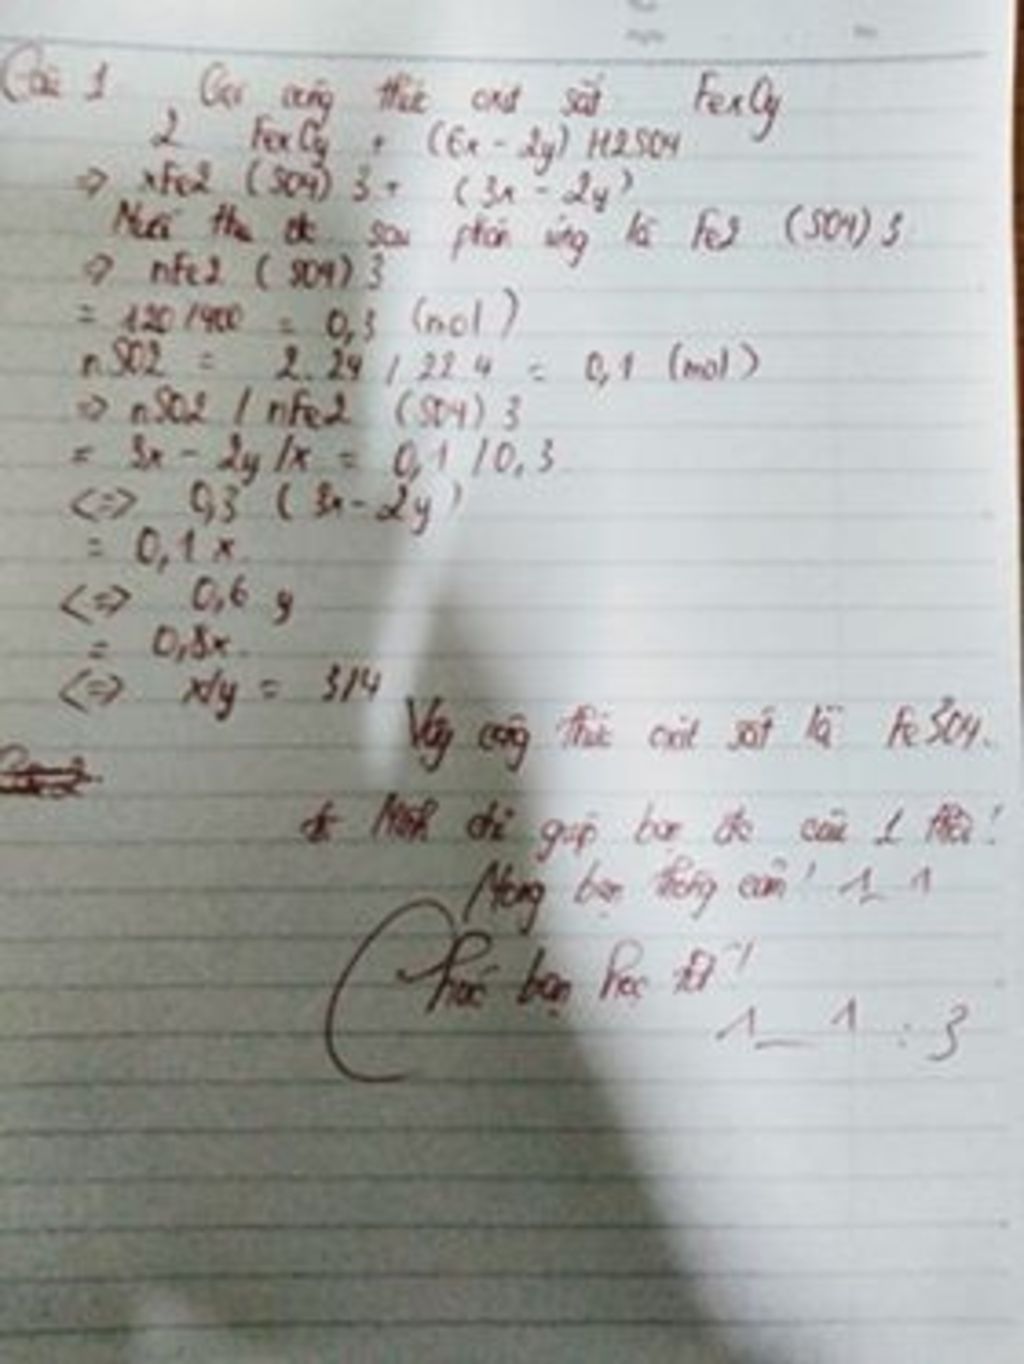 Câu 1 Gọi công thức oxit sắt FexOy
2 FexOy + (6x - 2y) H2SO4
=> xFe2 (SO4) 3 + (3x - 2y)
Muối thu đc sau phản ứng là Fe2 (SO4) 3
=> nFe2 (SO4) 3
= 120/400 = 0,3 (mol)
nSO2 = 2.24 / 22.4 = 0,1 (mol)
=> nSO2 / nFe2 (SO4) 3
= 3x - 2y /x = 0,1 /0,3
<=> 0,3 (3x - 2y)
= 0,1 x
<=> 0,6 y
= 0,8x
<=> x/y = 3/4
Vậy công thức oxit sắt là Fe3O4.
Mình chỉ giúp bạn đc câu 1 thôi!
Mong bạn thông cảm! ^_^
Chúc bạn học tốt!
^_^ :3